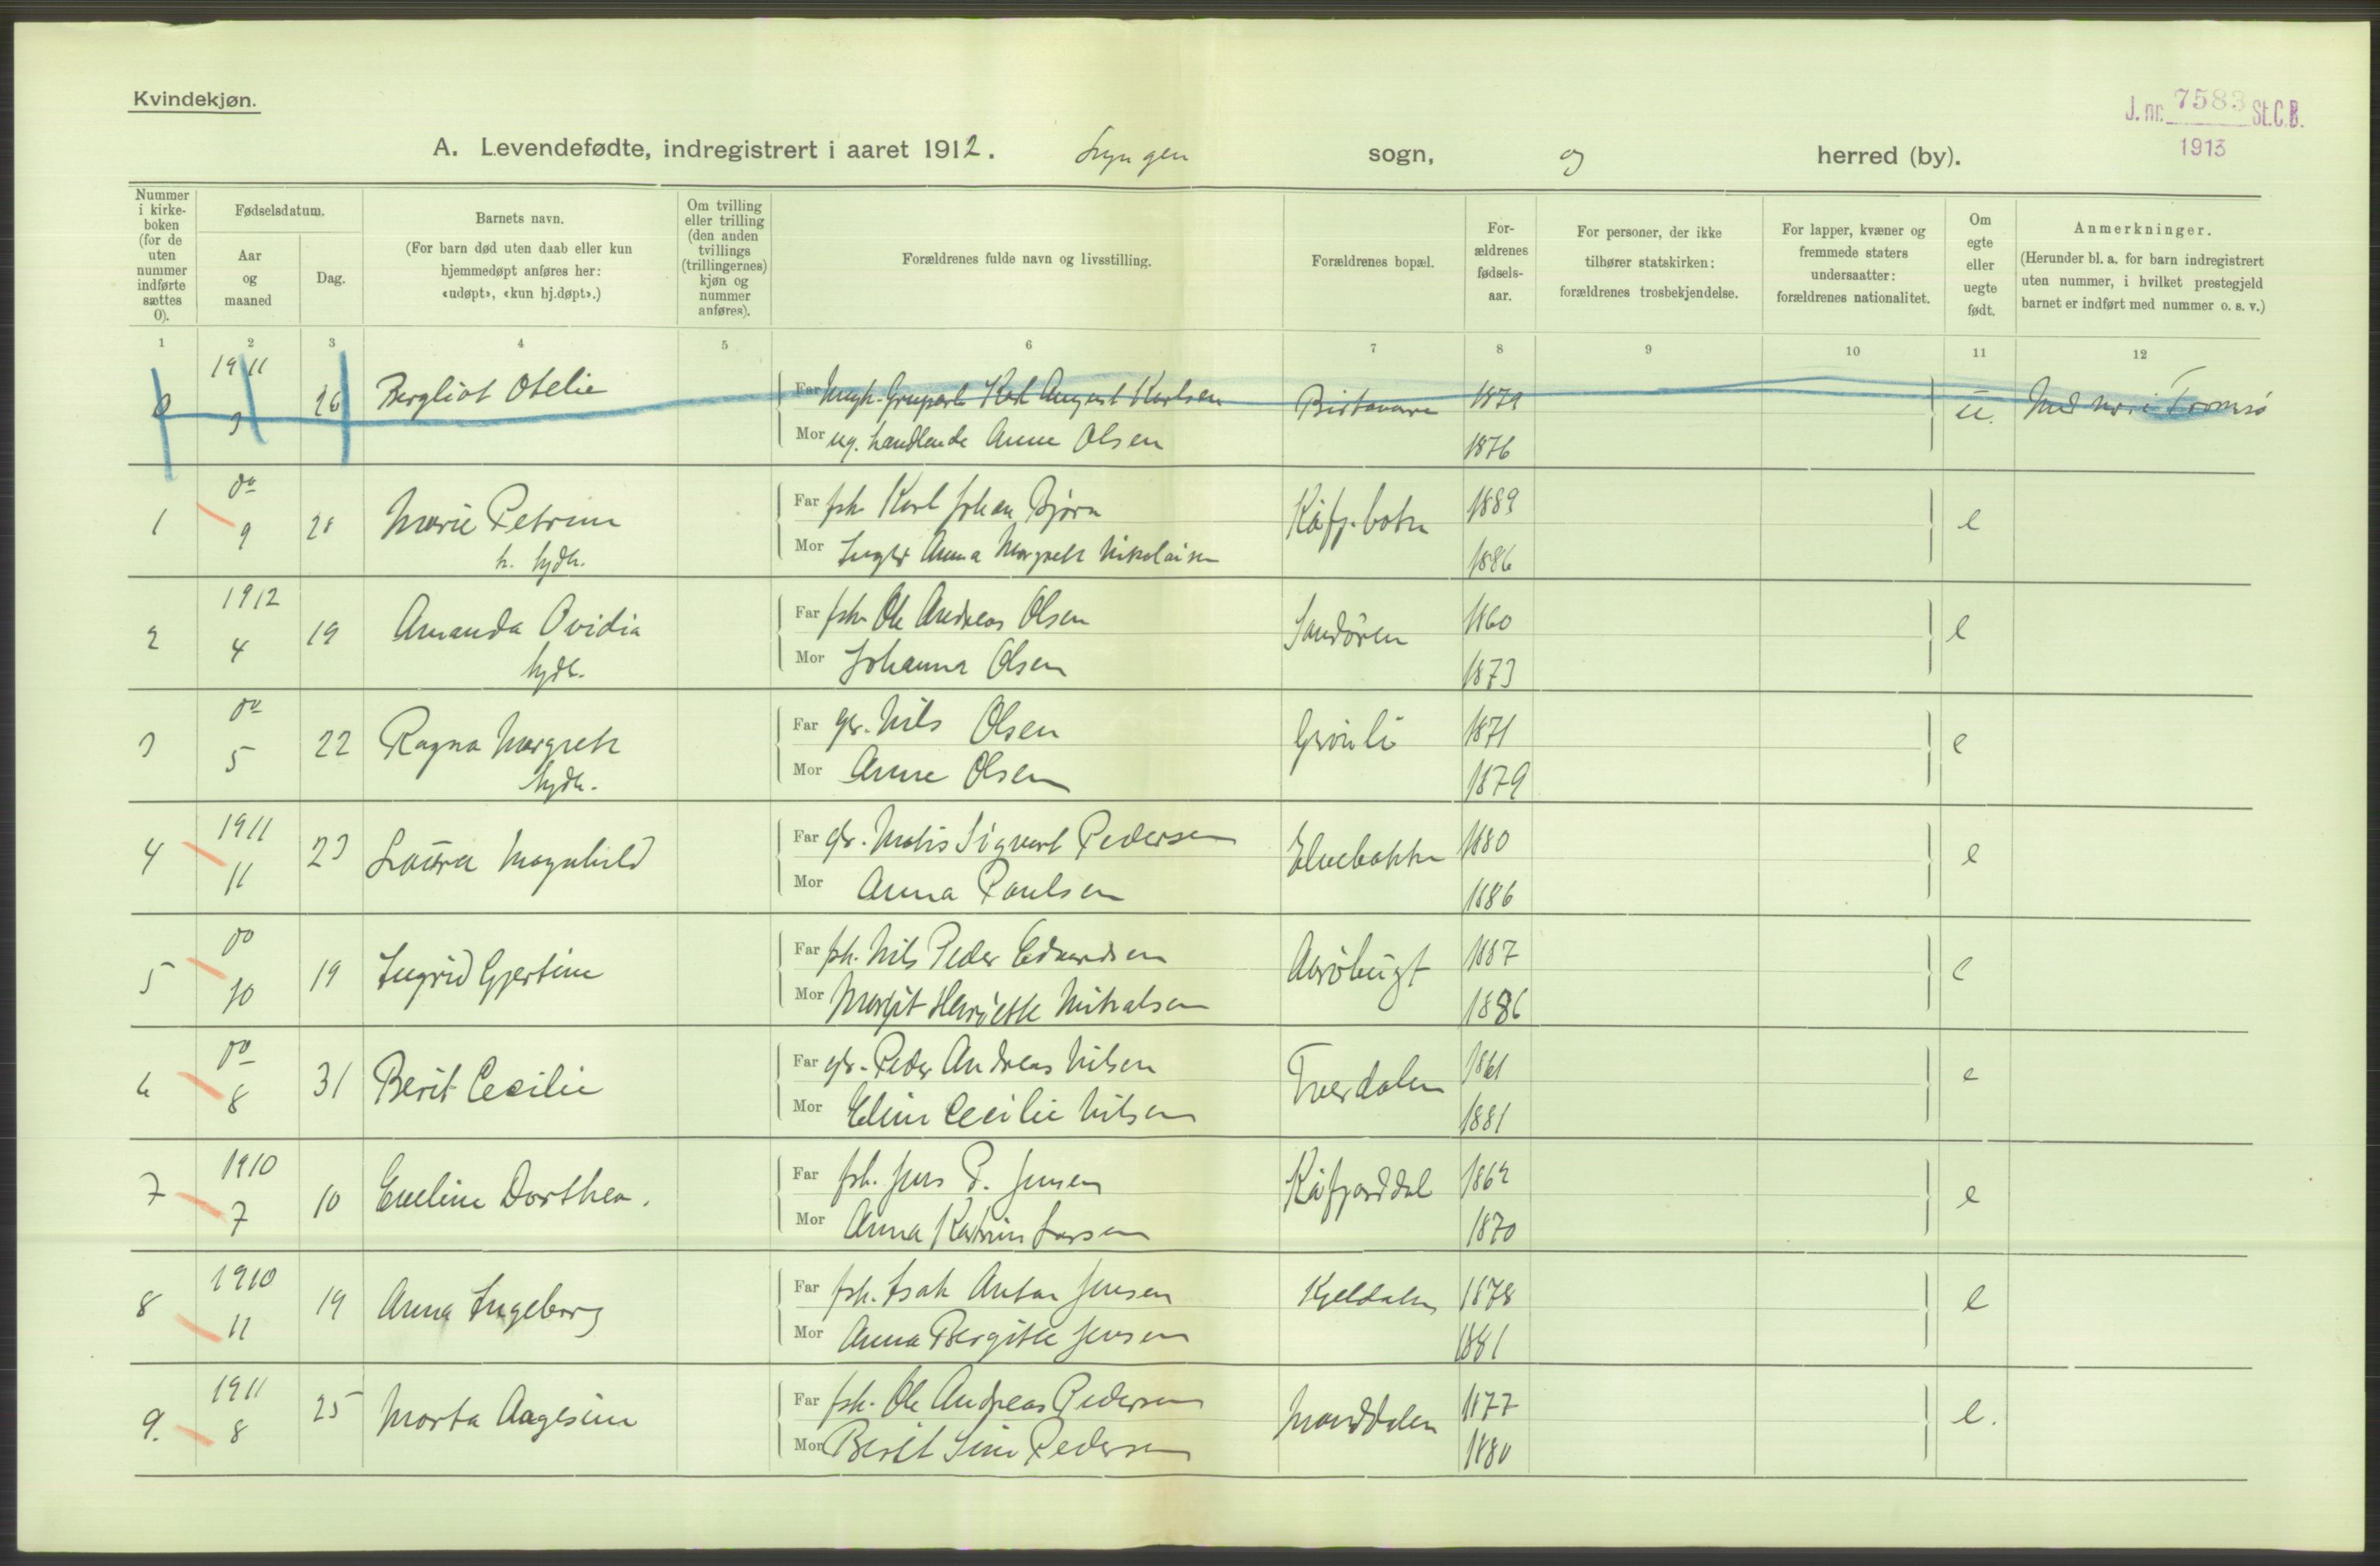 Kvindekjøn.
J. nr. 7583 St.C.B.
1913
A. Levendefødte, indregistrert i aaret 1912. Lyngen sogn, og herred (by).
Nummer i kirke-boken (for de uten nummer indførte sættes 0).
Fødselsdatum.
Aar og maaned
Dag.
Barnets navn.
(For barn død uten daab eller kun hjemmedøpt anføres her: «udøpt», «kun hj.døpt».)
Om tvilling eller trilling (den anden tvillings (trillingernes) kjøn og nummer anføres).
Forældrenes fulde navn og livsstilling.
Forældrenes bopæl.
For-ældrenes fødsels-aar.
For personer, der ikke tilhører statskirken: forældrenes trosbekjendelse.
For lapper, kvæner og fremmede staters undersaatter: forældrenes nationalitet.
Om egte eller uegte født.
Anmerkninger.
(Herunder bl. a. for barn indregistrert uten nummer, i hvilket prestegjeld barnet er indført med nummer o. s. v.)
1 2 3 4 5 6 7 8 9 10 11 12
0 1911 26 Bergliot Otelie Far Karl August Karlsen 1879 u. Med nr. i Tromsø
Mor ug. handlende Anne Olsen 1876
1 do 9 28 Marie Petrine Far fsk. Karl Johan Bjørn Kåfj.botn 1889 e
h. hjdt. Mor Inger Anna Margrete Nikolaisen 1886
2 1912 4 19 Amanda Ovidia Far fsk. Ole Andreas Olsen Sandøren 1860 e
hjdt. Mor Johanna Olsen 1873
3 do 5 22 Ragna Margrete Far gr. Nils Olsen Grønli 1871 e
hjdt. Mor Anne Olsen 1879
4 1911 11 23 Laura Magnhild Far gr. Matis Sigvart Pedersen Elvebakken 1880 e
Mor Anna Paulsen 1886
5 do 10 19 Ingrid Gjertine Far fsk. Nils Peder Edvardsen Aarøbugt 1887 e
Mor Margit Henriette Mikalsen 1886
6 do 8 31 Berit Cecilie Far gr. Peder Andreas Nilsen Tverdalen 1861 e
Mor Eline Cecilie Nilsen 1881
7 1910 7 10 Eveline Dorthea. Far fsk. Jens P. Jensen Kåfjorddal 1862 e
Mor Anna Katrine Larsen 1870
8 1910 11 19 Anna Ingeborg Far fsk. Isak Anton Jensen Kjeldalen 1878 e
Mor Anna Bergitte Jensen 1881
9. 1911 8 25 Marta Aagesine Far fsk. Ole Andreas Pedersen Manddalen 1877 e.
Mor Berit Sine Pedersen 1880